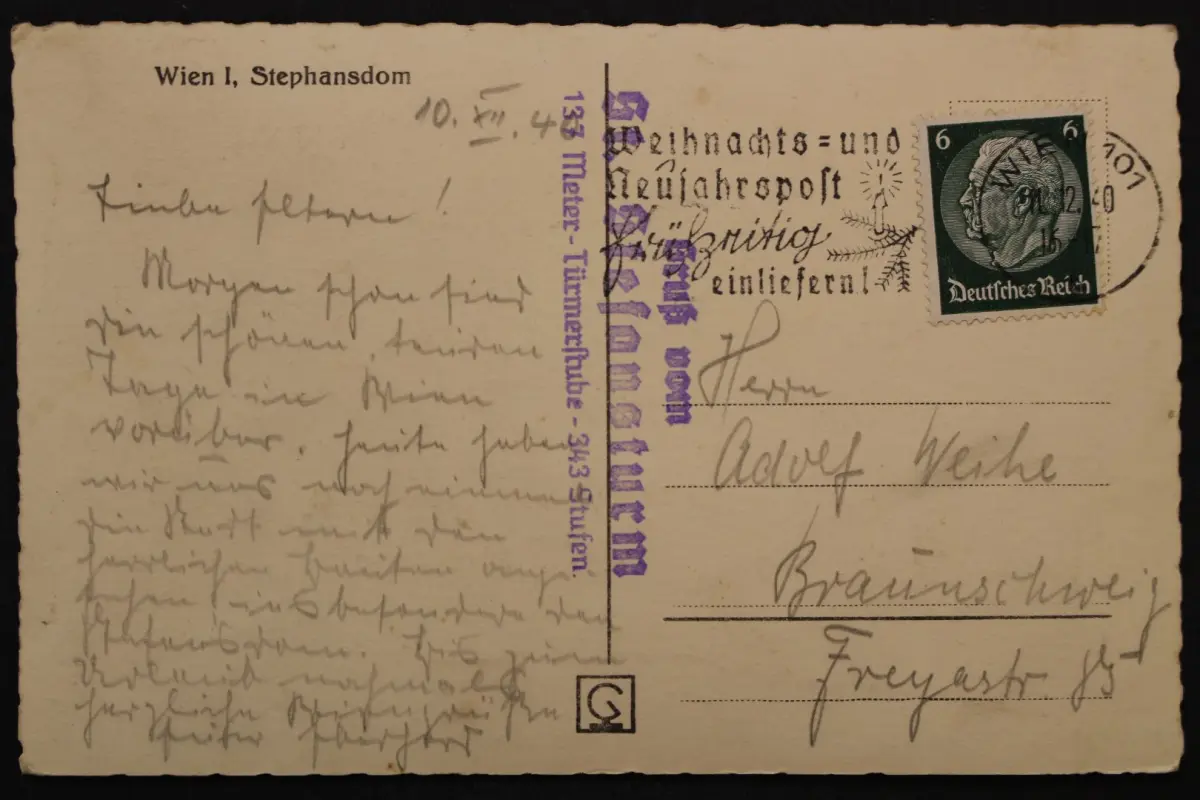 Wien I, Stephansdom
10. XII. 40
Liebe Eltern!
Morgen schon sind
die schönen, teuren
Tage in Wien
vorüber. Heute haben
wir uns noch einmal
die Stadt mit den
herrlichen Bauten ange-
sehen insbesondere den
Stefansdom. Bis zum
Urlaub nochmals
herzliche
Eberhard
133 Meter - Türmerstube - 343 Stufen.
St. Stefansturm
Gruß vom
Weihnachts=und
Neujahrspost
frühzeitig
einliefern!
WIEN 101
12. 40
6 6
Deutsches Reich
Herrn
Adolf Weihe
Braunschweig
Freyastr.
G